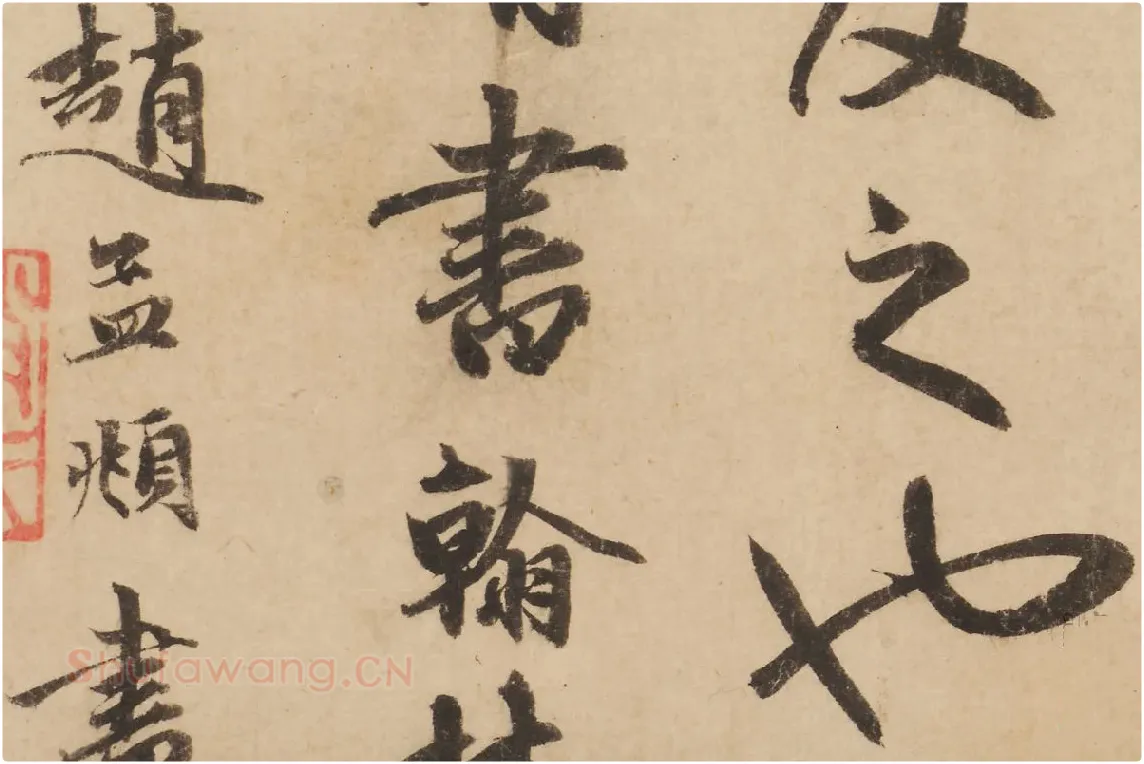 之也
書翰
趙孟頫書
Shufawang.CN